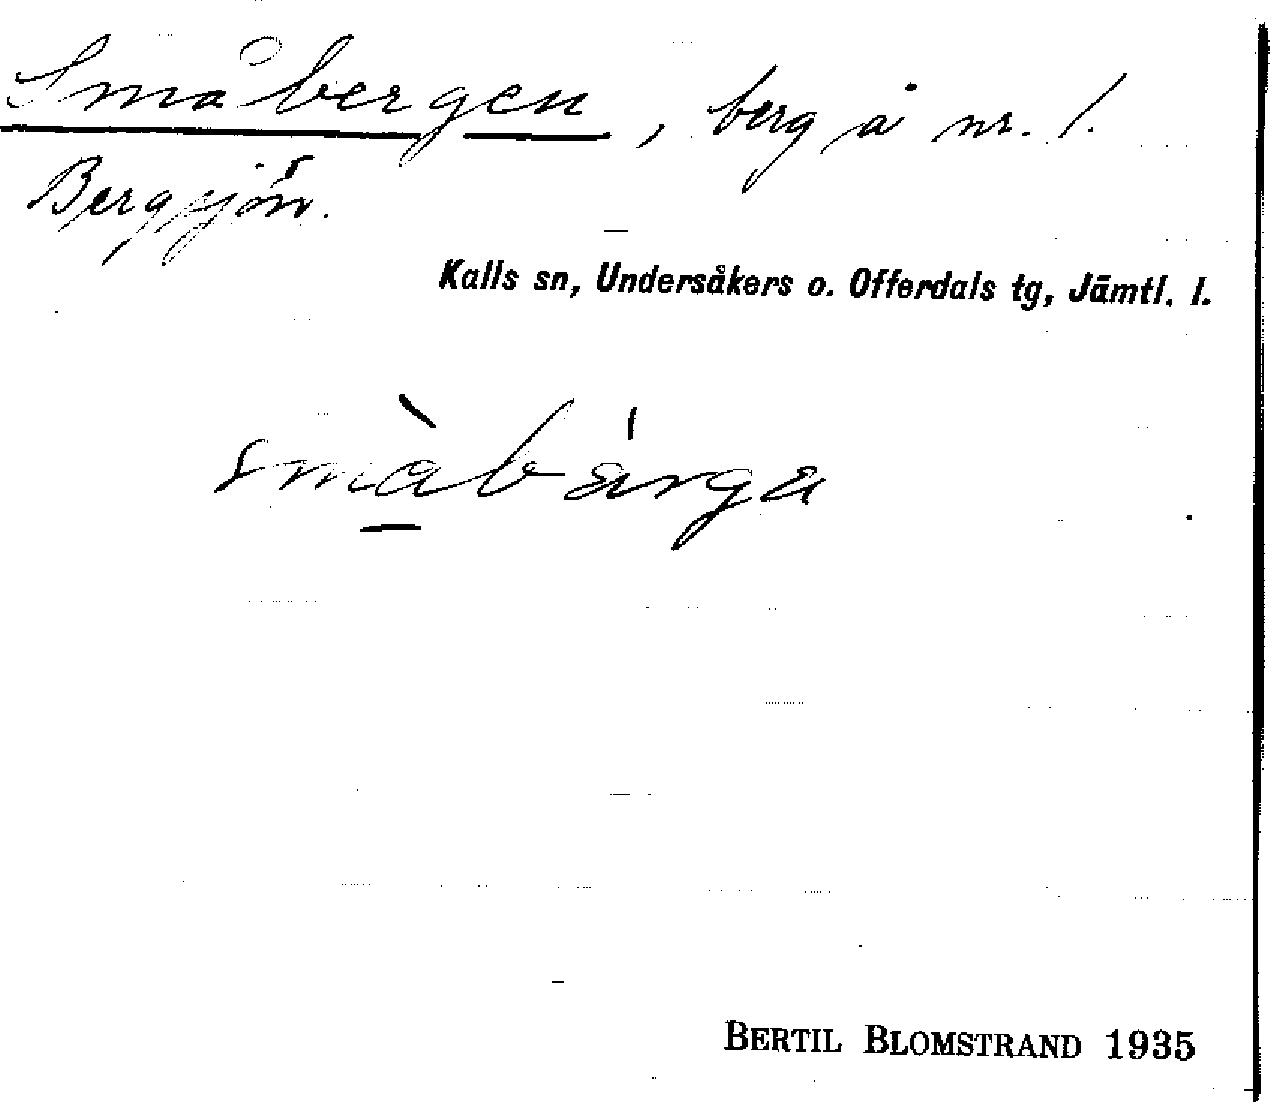 Småbergen, berg å nr. 1.
Bergsjön.
Kalls sn, Undersåkers o. Offerdals tg, Jämtl. l.
småbärga
BERTIL BLOMSTRAND 1935